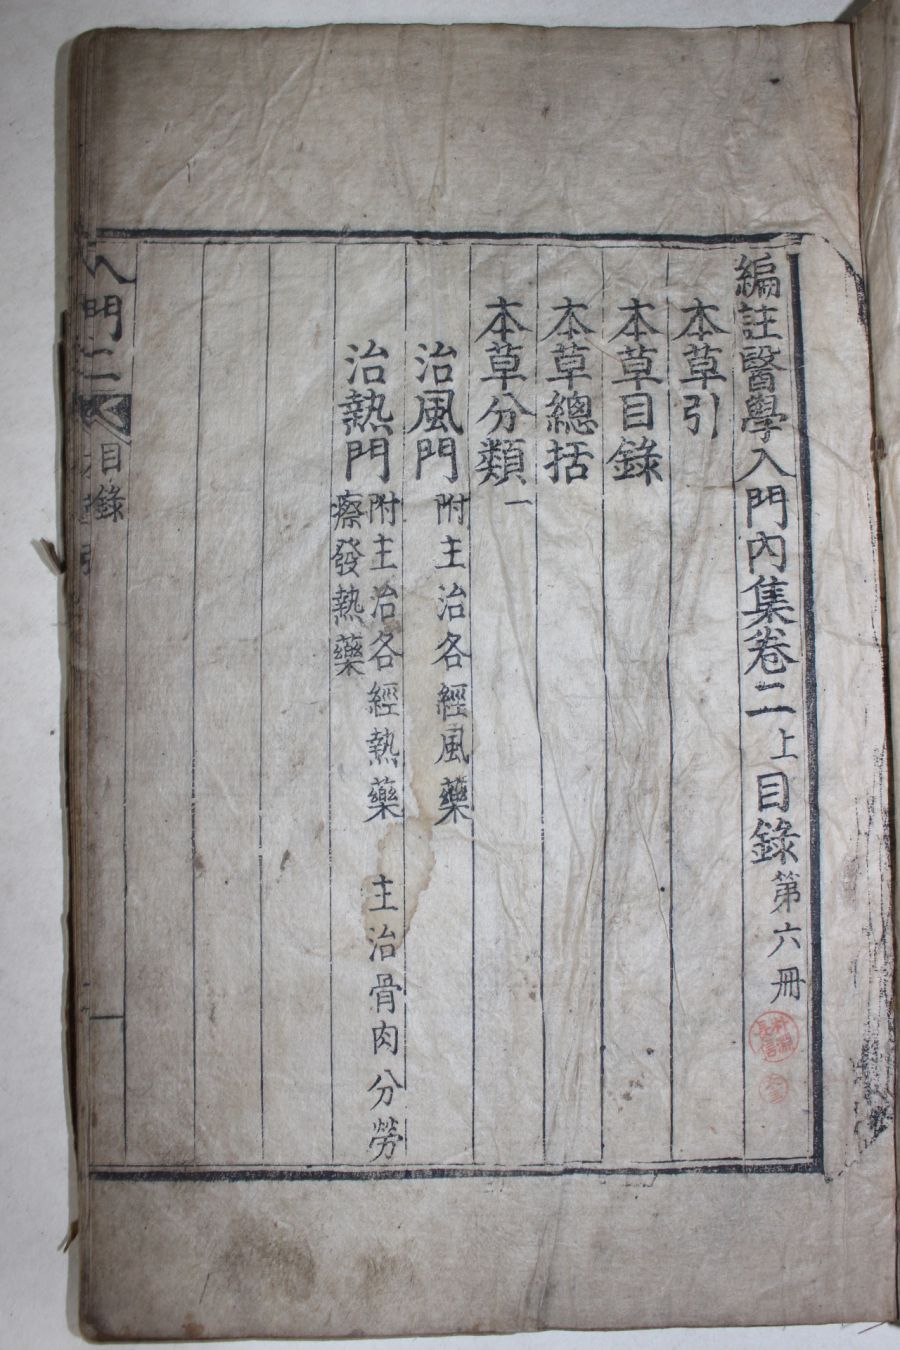 編註醫學入門內集卷二上目錄第六冊
本草引
本草目錄
本草總括
本草分類一
治風門附主治各經風藥
治熱門附主治各經熱藥 主治骨肉分勞
瘵發熱藥
入門二 目錄
一